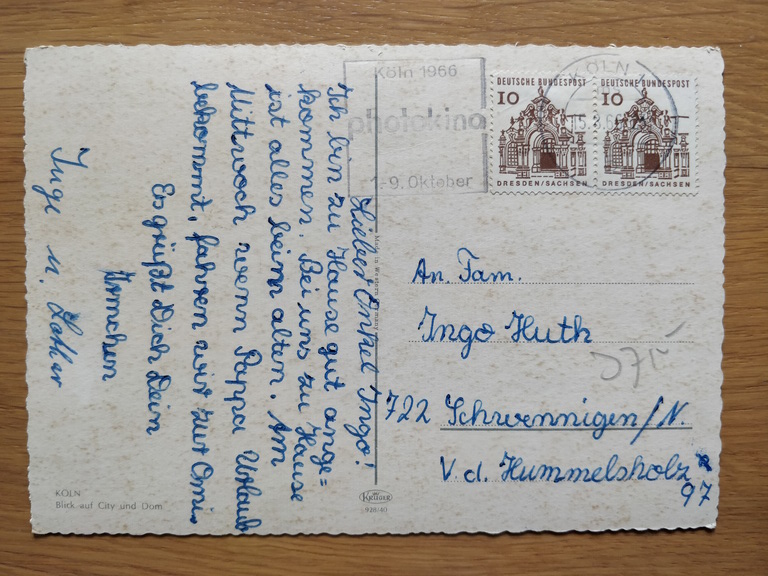 Lieber Onkel Ingo!
Ich bin zu Hause gut ange=
kommen. Bei uns zu Hause
ist alles beim alten. Am
Mittwoch wenn Pappa Urlaub
bekommt, fahren wir zur Omi.
Es grüßt Dich Dein
Inge u. Lothar
KÖLN
Blick auf City und Dom
KRÜGER
926/40
Köln 1966
photokina
1-9. Oktober
KÖLN
DEUTSCHE BUNDESPOST
10
DRESDEN/SACHSEN
DEUTSCHE BUNDESPOST
10
DRESDEN/SACHSEN
An Fam.
Ingo Huth
722 Schwennigen/N.
V. d. Hummelsholz
97